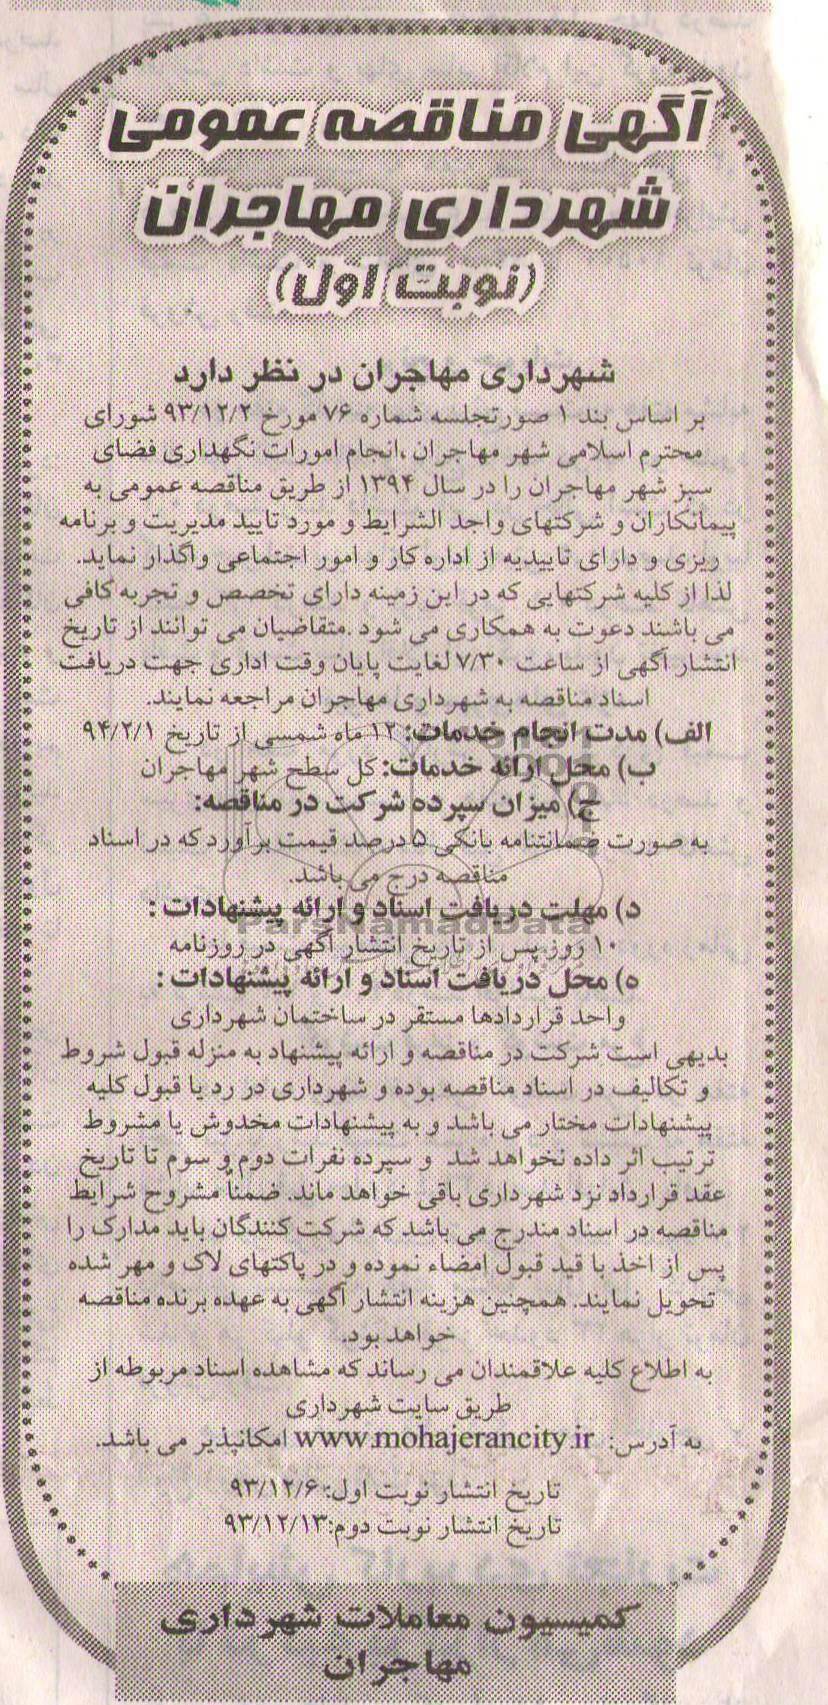 آگهی مناقصه عمومی
شهرداری مهاجران
(نوبت اول)
شهرداری مهاجران در نظر دارد
بر اساس بند ۱ صورتجلسه شماره ۷۶ مورخ ۹۳/۱۲/۲ شورای
محترم اسلامی شهر مهاجران ،انجام امورات نگهداری فضای
سبز شهر مهاجران را در سال ۱۳۹۴ از طریق مناقصه عمومی به
پیمانکاران و شرکتهای واجد الشرایط و مورد تایید مدیریت و برنامه
ریزی و دارای تاییدیه از اداره کار و امور اجتماعی واگذار نماید.
لذا از کلیه شرکتهایی که در این زمینه دارای تخصص و تجربه کافی
می باشند دعوت به همکاری می شود .متقاضیان می توانند از تاریخ
انتشار آگهی از ساعت ۷/۳۰ لغایت پایان وقت اداری جهت دریافت
اسناد مناقصه به شهرداری مهاجران مراجعه نمایند.
الف) مدت انجام خدمات: ۱۲ ماه شمسی از تاریخ ۹۴/۲/۱
ب) محل ارائه خدمات: کل سطح شهر مهاجران
ج) میزان سپرده شرکت در مناقصه:
به صورت ضمانتنامه بانکی ۵ درصد قیمت برآورد که در اسناد
مناقصه درج می باشد.
د) مهلت دریافت اسناد و ارائه پیشنهادات :
ParsNamadData
۱۰ روز پس از تاریخ انتشار آگهی در روزنامه
ه) محل دریافت اسناد و ارائه پیشنهادات :
واحد قراردادها مستقر در ساختمان شهرداری
بدیهی است شرکت در مناقصه و ارائه پیشنهاد به منزله قبول شروط
و تکالیف در اسناد مناقصه بوده و شهرداری در رد یا قبول کلیه
پیشنهادات مختار می باشد و به پیشنهادات مخدوش یا مشروط
ترتیب اثر داده نخواهد شد و سپرده نفرات دوم و سوم تا تاریخ
عقد قرارداد نزد شهرداری باقی خواهد ماند. ضمناً مشروح شرایط
مناقصه در اسناد مندرج می باشد که شرکت کنندگان باید مدارک را
پس از اخذ با قید قبول امضاء نموده و در پاکتهای لاک و مهر شده
تحویل نمایند. همچنین هزینه انتشار آگهی به عهده برنده مناقصه
خواهد بود.
به اطلاع کلیه علاقمندان می رساند که مشاهده اسناد مربوطه از
طریق سایت شهرداری
به آدرس: www.mohajerancity.ir امکانپذیر می باشد.
تاریخ انتشار نوبت اول: ۹۳/۱۲/۶
تاریخ انتشار نوبت دوم: ۹۳/۱۲/۱۳
کمیسیون معاملات شهرداری
مهاجران